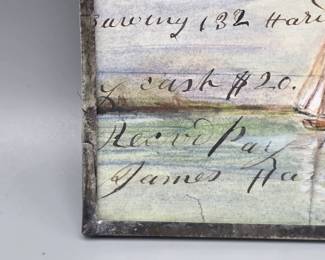 sawing 132 Hard
By cash $20.
Recvd Pay
James Har